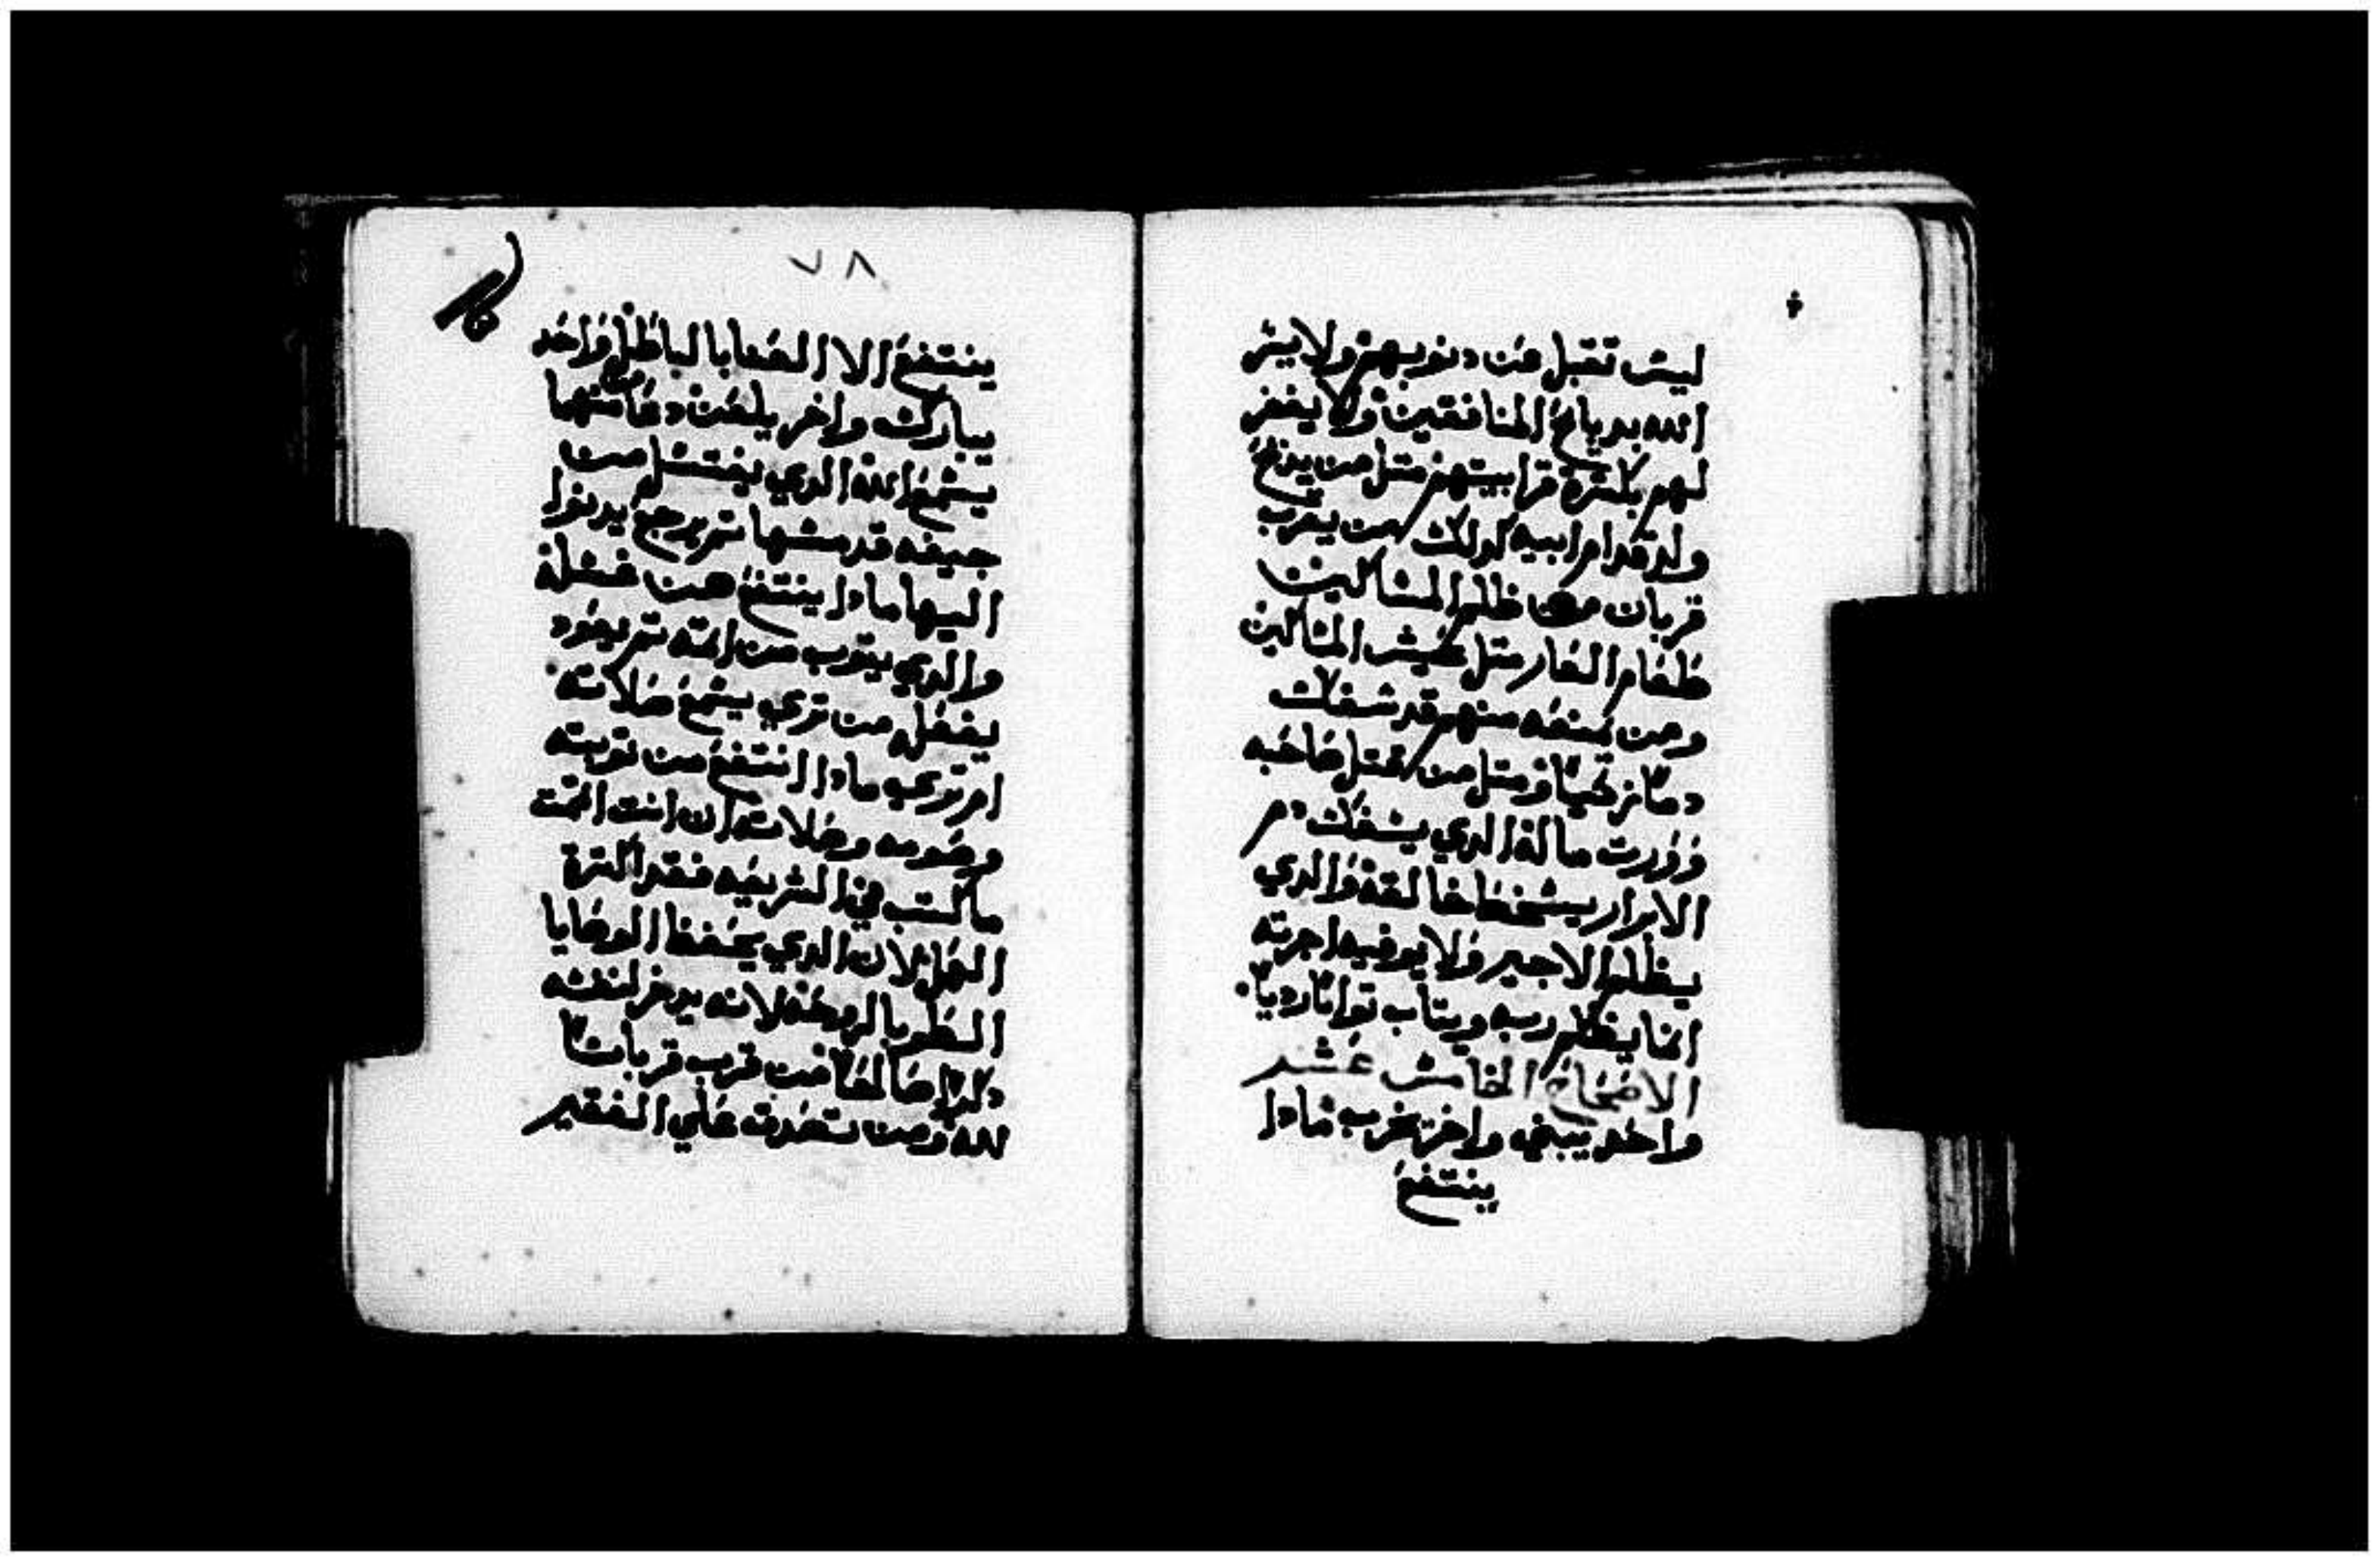 ليس تقبل من دنوبهم ولا يسر
الله بدبايح المنافقين ولا يغفر
لهم بكثرة قرابينهم متل من يدبح
ولد قدام ابيه كدلك من يقرب
قربان من ظلم المساكين
طعام العار متل عيش المساكين
ومن يمنعه منهم قد سفك
دما زكيا ومتل من يقتل صاحبه
وورت ماله الدي يسفك دم
الابرار يسخط خالقه والدي
يظلم الاجير ولا يوفيه اجرته
انما يظلم ربه ويتاب توابا رديا
الاصحاح الخامس عشر
واحد يبني واخر يخرب فمادا
ينتفع
٧٨
ينتفع الا العنا بالباطل واحد
يبارك واخر يلعن دعا من منهما
يسمع الله الدي يغتسل من
جيفه قد مسها تم يرجع يدنوا
اليها مادا ينتفع من غسله
والدي يتوب من اتمه تم يعود
يفعله من تري يسمع صلاته
ام تري مادا انتفع من توبته
وصومه وصلاته ان انت اتممت
ما كتب في الشريعه فقد اكترة
العمل لان الدي يحفظ الوصايا
العظم بالوصيه لانه يدخر لنفسه
دكرا صالحا من قرب قربانا
لله ومن تصدق علي الفقير